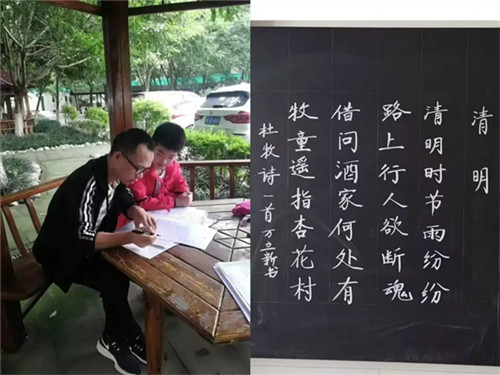 清明
清明时节雨纷纷
路上行人欲断魂
借问酒家何处有
牧童遥指杏花村
杜牧诗一首万立新书